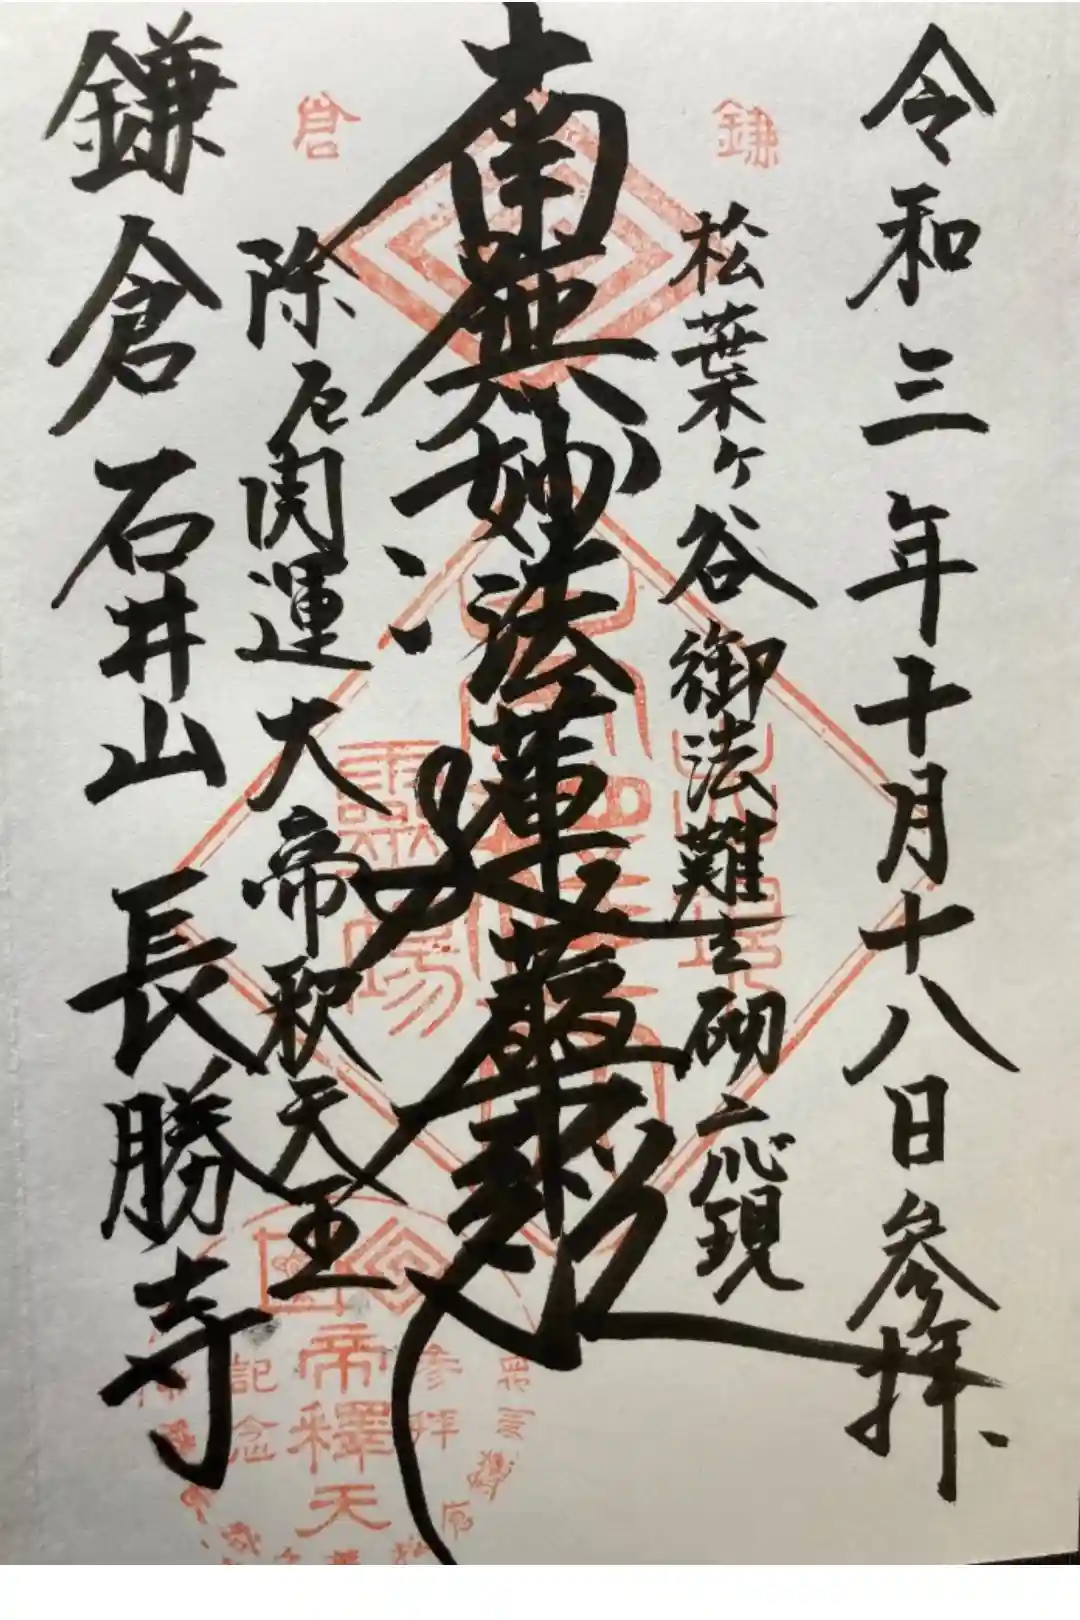 令和三年十月十八日参拝
鎌
松葉ヶ谷御法難之砌
南無妙法蓮華経
倉
除厄開運大帝釈天王
鎌倉石井山長勝寺
霊場
参拝
帝釋天
記念